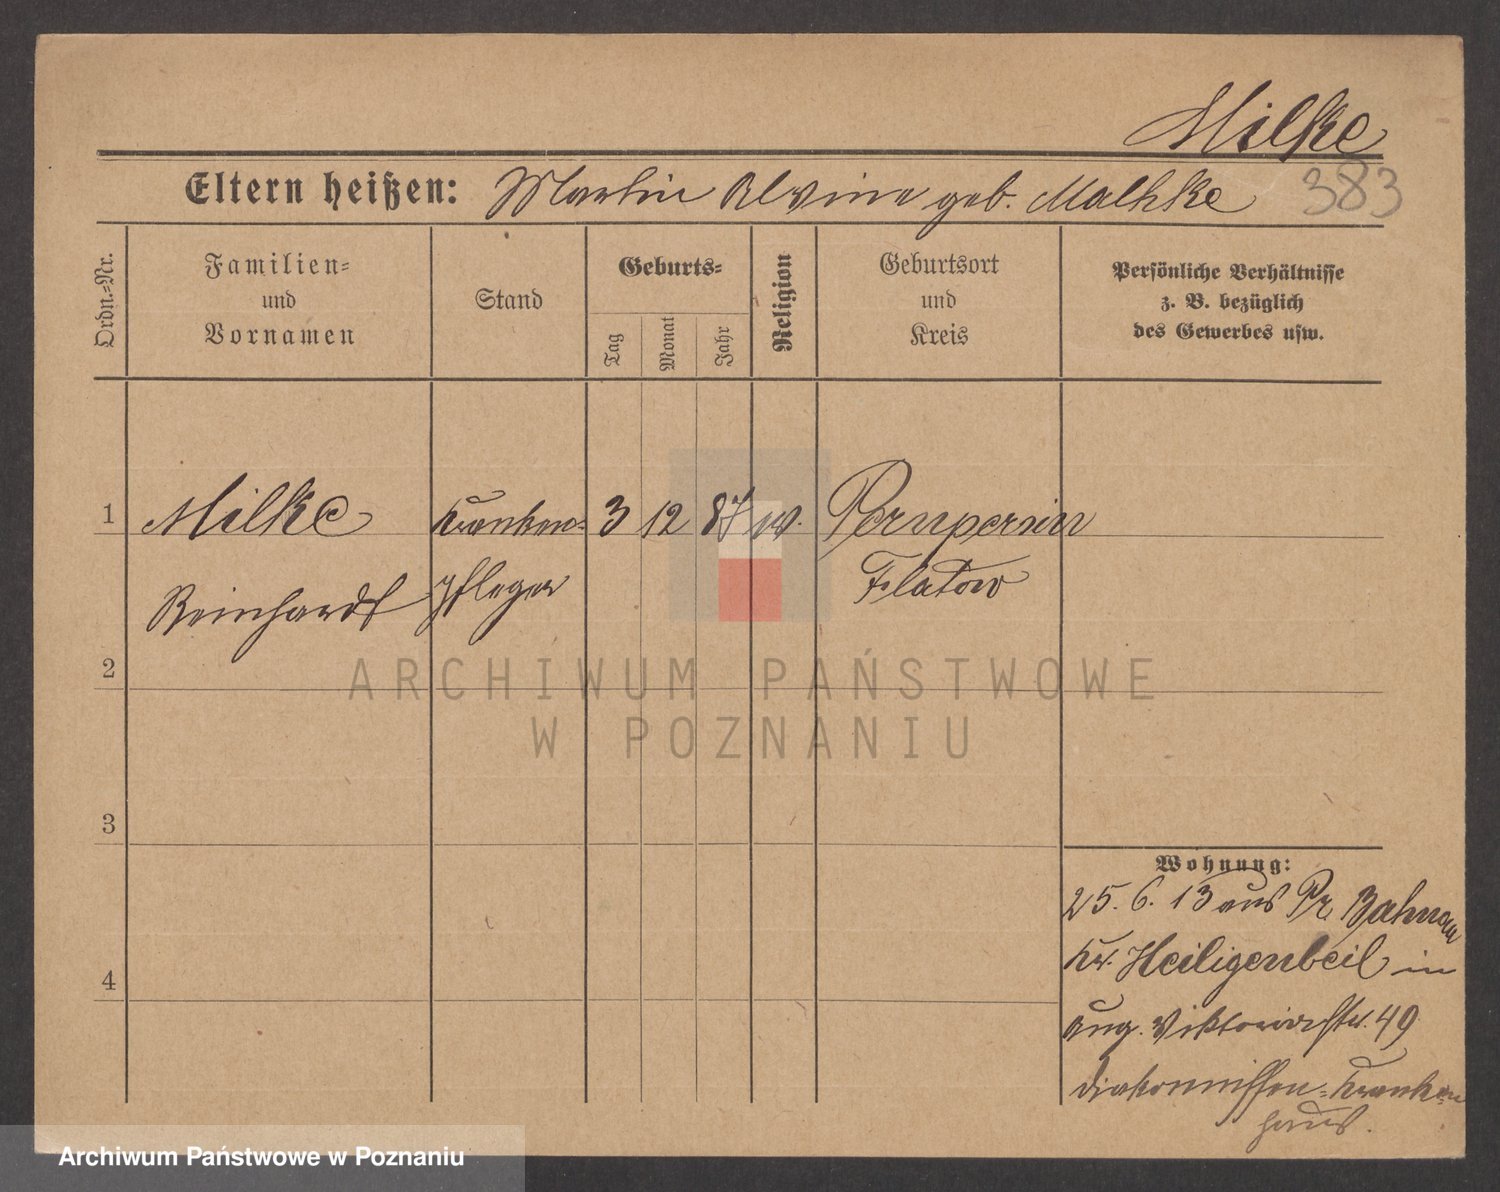 Milke
Eltern heißen: Martin Alwine geb. Malhke
383
Ordn.-Nr.
Familien-
und
Vornamen
Stand
Geburts-
Tag
Monat
Jahr
Religion
Geburtsort
und
Kreis
Persönliche Verhältnisse
z. B. bezüglich
des Gewerbes usw.
1 Milke Kranken- 3 12 87 Pernpersin
Reinhardt pfleger Flatow
2
3
4
Wohnung:
25. 6. 13 aus Pr. Bahnau
Kr. Heiligenbeil in
Aug. Viktoriastr. 49
Diakonissen-Kranken
haus.
ARCHIWUM PAŃSTWOWE
W POZNANIU
Archiwum Państwowe w Poznaniu